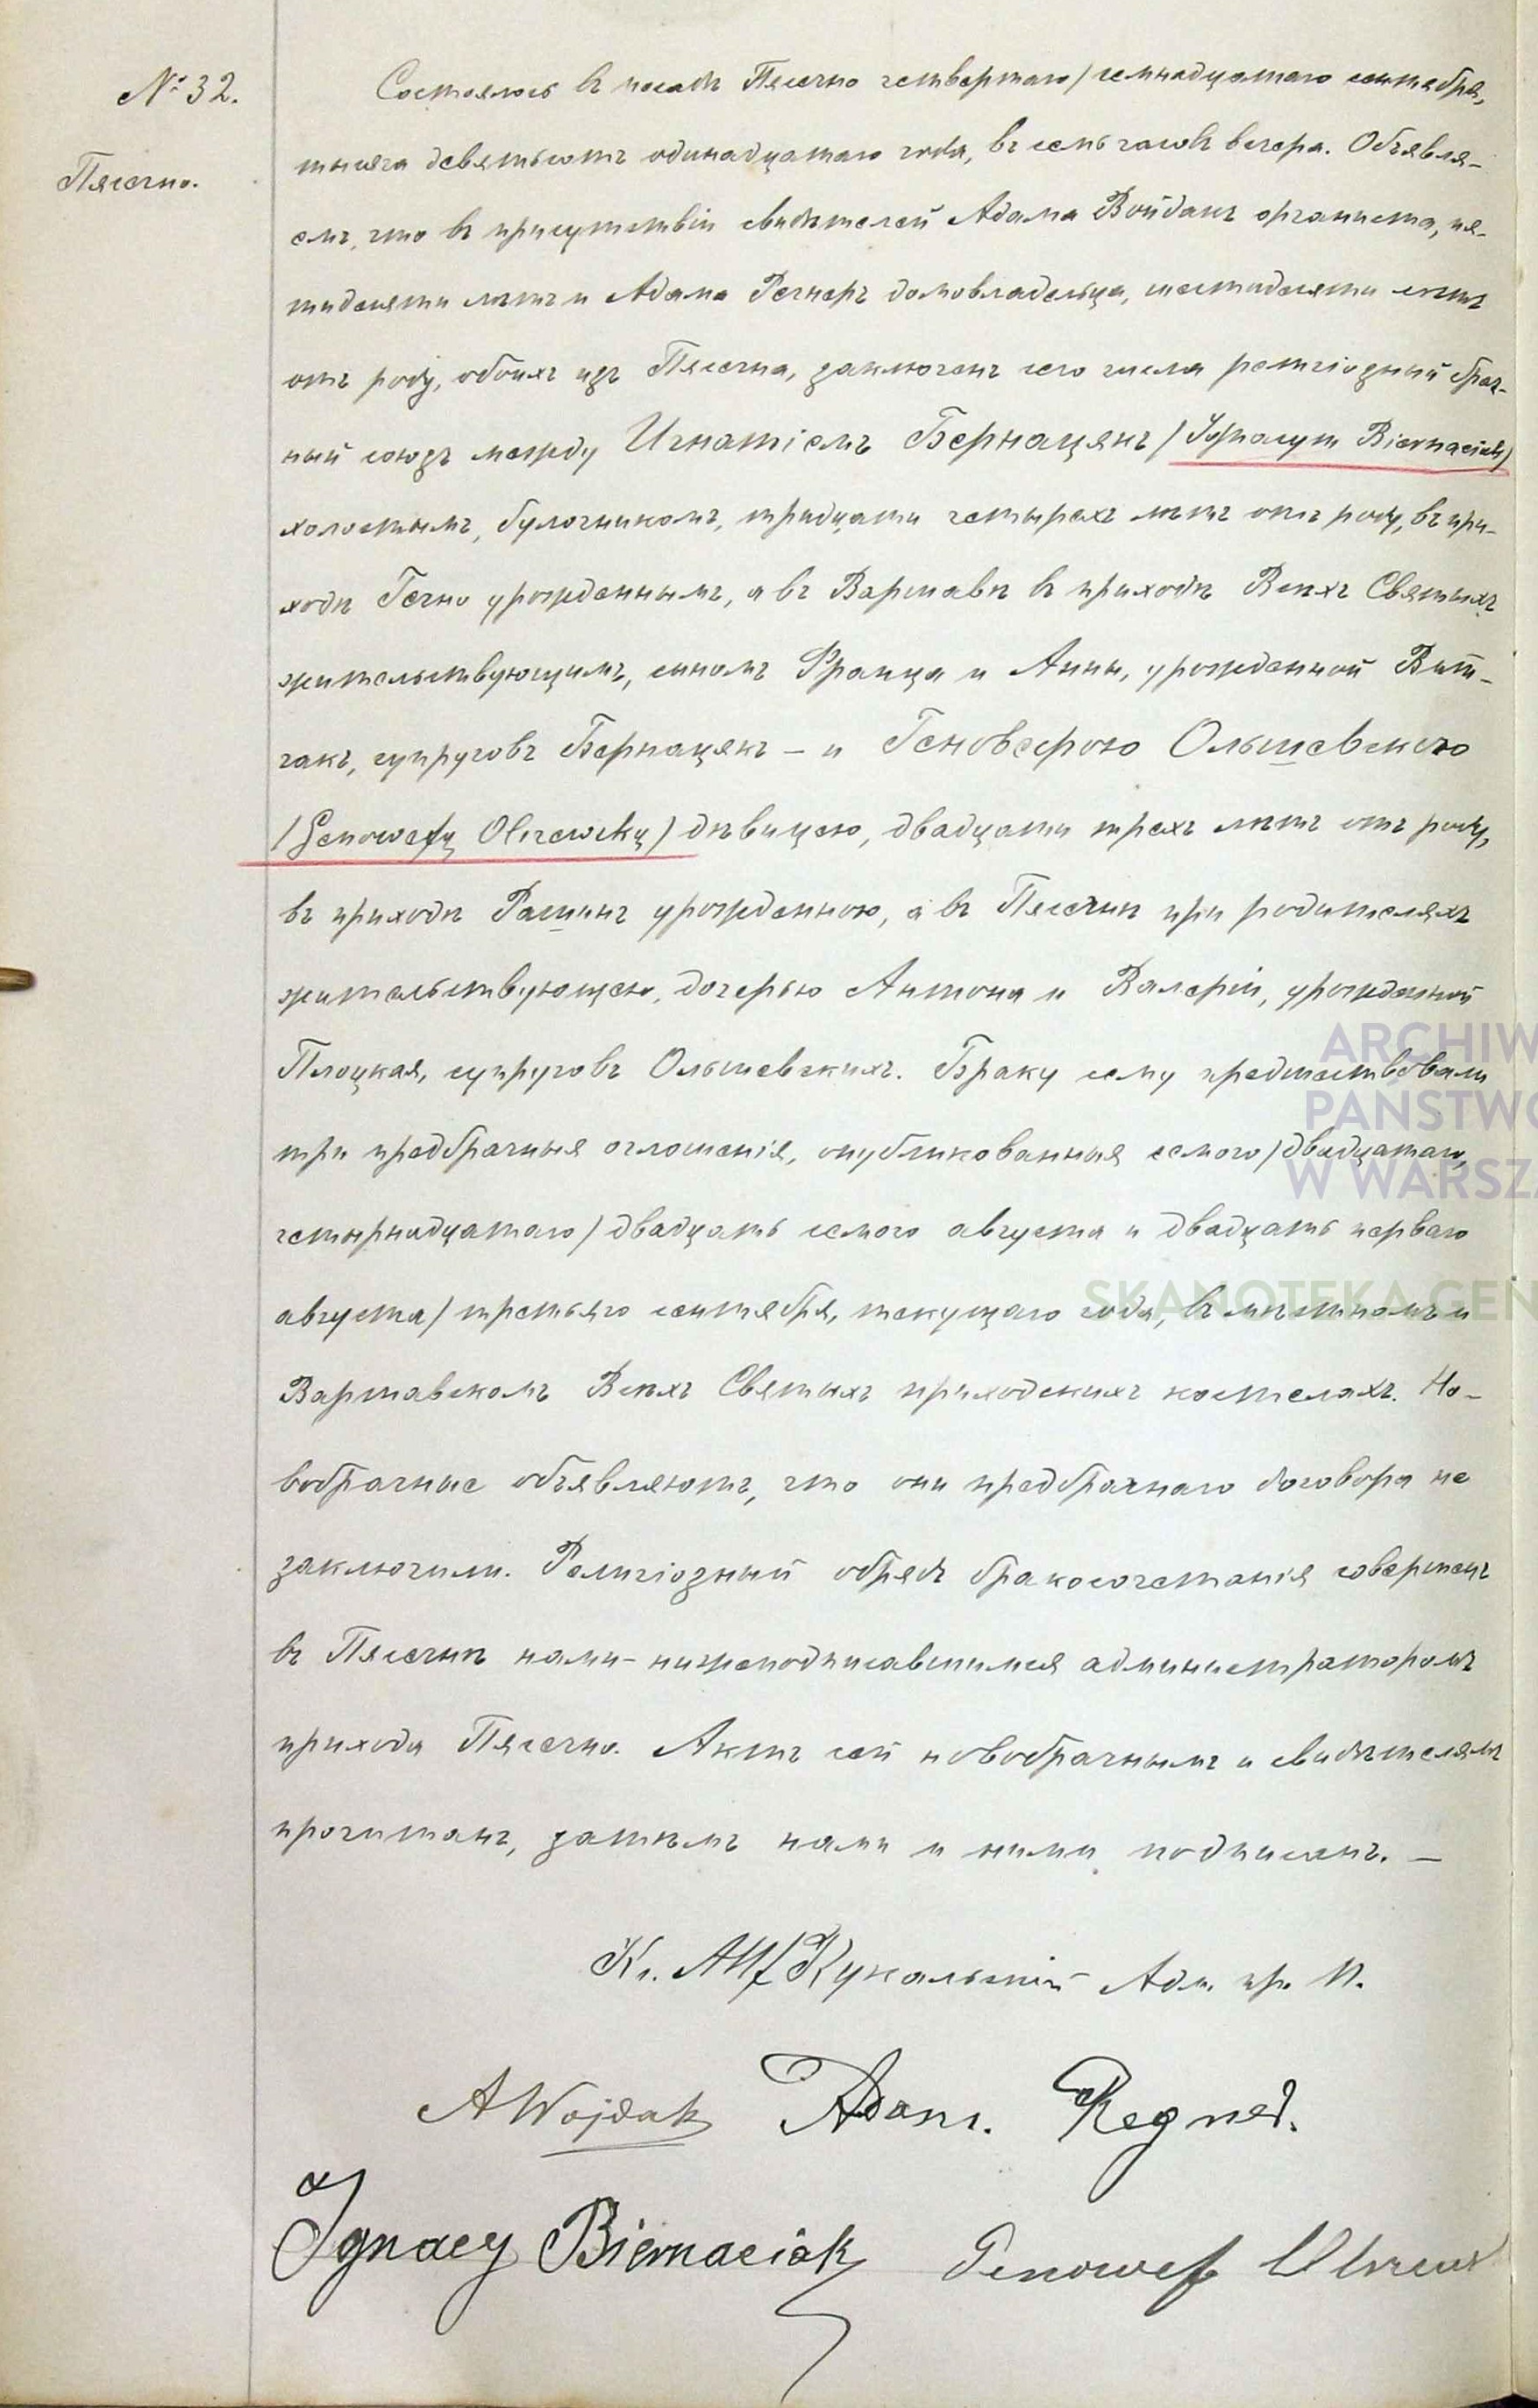 № 32.
Пясечно.
Состоялось въ посадѣ Пясечно четвертаго/семнадцатаго сентября,
тысяча девятьсотъ одинадцатаго года, въ семь часовъ вечера. Объявля-
емъ, что въ присутствіи свидѣтелей Адама Войдакъ органиста, пя-
тидесяти лѣтъ и Адама Регнеръ домовладельца, шестидесяти лѣтъ
отъ роду, обоихъ изъ Пясечна, заключенъ сего числа религіозный брач-
ный союзъ между Игнатіемъ Бернацякъ /Ignacym Biernaciak/
холостымъ, булочникомъ, тридцати четырехъ лѣтъ отъ роду, въ при-
ходѣ Гечно урожденнымъ, а въ Варшавѣ въ приходѣ Всѣхъ Святыхъ
жительствующимъ, сыномъ Франца и Анны, урожденной Вит-
чакъ, супруговъ Бернацякъ – и Геновефою Ольшевскою
/Genowefą Olszewską/ дѣвицею, двадцати трехъ лѣтъ отъ роду,
въ приходѣ Рашинъ урожденною, а въ Пясечнѣ при родителяхъ
жительствующею, дочерью Антона и Валеріи, урожденной
Плоцкая, супруговъ Ольшевскихъ. Браку сему предшествовали
три предбрачныя оглошенія, опубликованныя седмого/двадцатаго,
четырнадцатаго/двадцать седмого августа и двадцать перваго
августа/третьяго сентября, текущаго года, въ мѣстномъ и
Варшавскомъ Всѣхъ Святыхъ приходскихъ костелахъ. Но-
вобрачные объявляютъ, что они предбрачнаго договора не
заключили. Религіозный обрядъ бракосочетанія совершенъ
въ Пясечнѣ нами – нижеподписавшимся администраторомъ
прихода Пясечно. Актъ сей новобрачнымъ и свидѣтелямъ
прочитанъ, затѣмъ нами и ними подписанъ. —
Кс. Адм. пр. П.
A Wojdak Adam. Regner.
Ignacy Biernaciak Genowef Olszews
ARCHIW
PAŃSTWO
W WARSZA
SKANOTEKA GEN